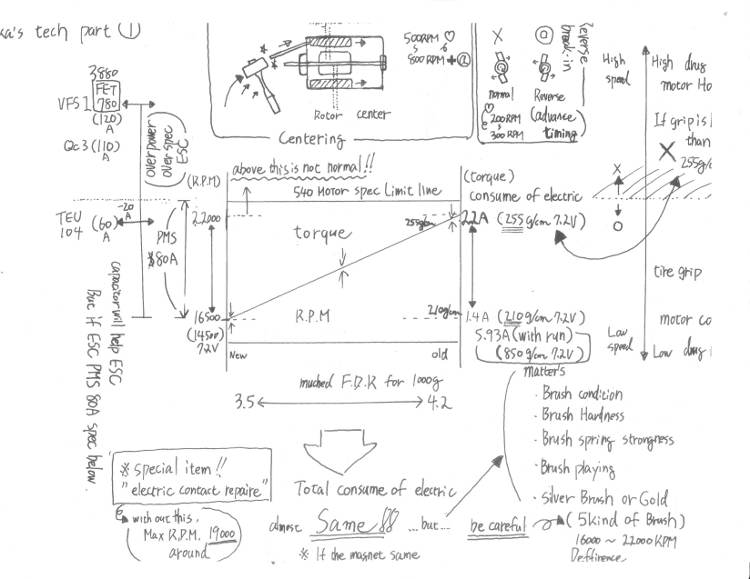 ka's tech part ①
3880
FET
780
VFS 1
(120)
A
Qc3 (110)
A
over power
over spec
ESC
-20
A
TEU
104
(60)
A
PMS
80A
capacitor will help ESC
But if ESC PMS 80A spec below.
Rotor center
Centering
500RPM ♡
800 RPM + ②
X
◎
normal
Reverse
200RPM
300 RPM
(advance
timing)
Reverse
break-in
High
speed
High drug
motor Ho
If grip is
than
255g/c
X
tire grip
motor co
Low
speed
Low drug
above this is not normal!!
(R.P.M)
540 Motor spec Limit line
(torque)
consume of electric
22000
255g/cm
2.2A (255 g/cm 7.2V)
torque
R.P.M
210g/cm
1.4A (210 g/cm 7.2V)
16500
(14500)
7.2V
5.93A (with run)
(850 g/cm 7.2V)
New
old
muched F.D.R for 1000g
3.5
4.2
matter's
· Brush condition
· Brush Hardness
· Brush spring strongness
· Brush playing
· Silver Brush or Gold
(5kind of Brush)
16000 ~ 22000 RPM
Deffirence
※ special item!!
"electric contact repaire"
with out this.
Max R.P.M. 19000
around
Total consume of electric
almost Same!! ...but... be careful
※ If the magnet same